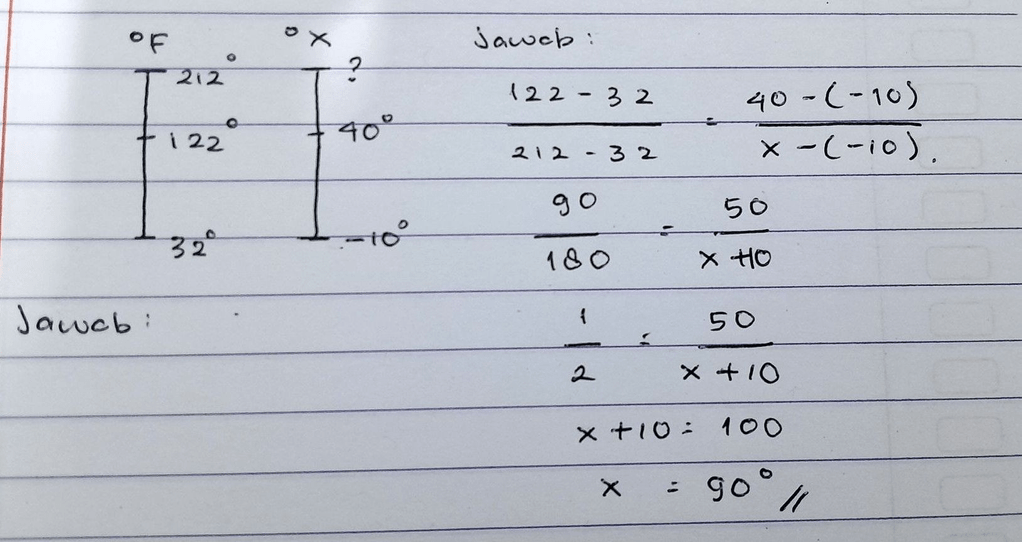 °F °X
212° ?
122° 40°
32° -10°
Jawab :
Jawab :
122 - 32 / 212 - 32 = 40 - (-10) / x - (-10).
90 / 180 = 50 / x + 10
1 / 2 = 50 / x + 10
x + 10 = 100
x = 90° //